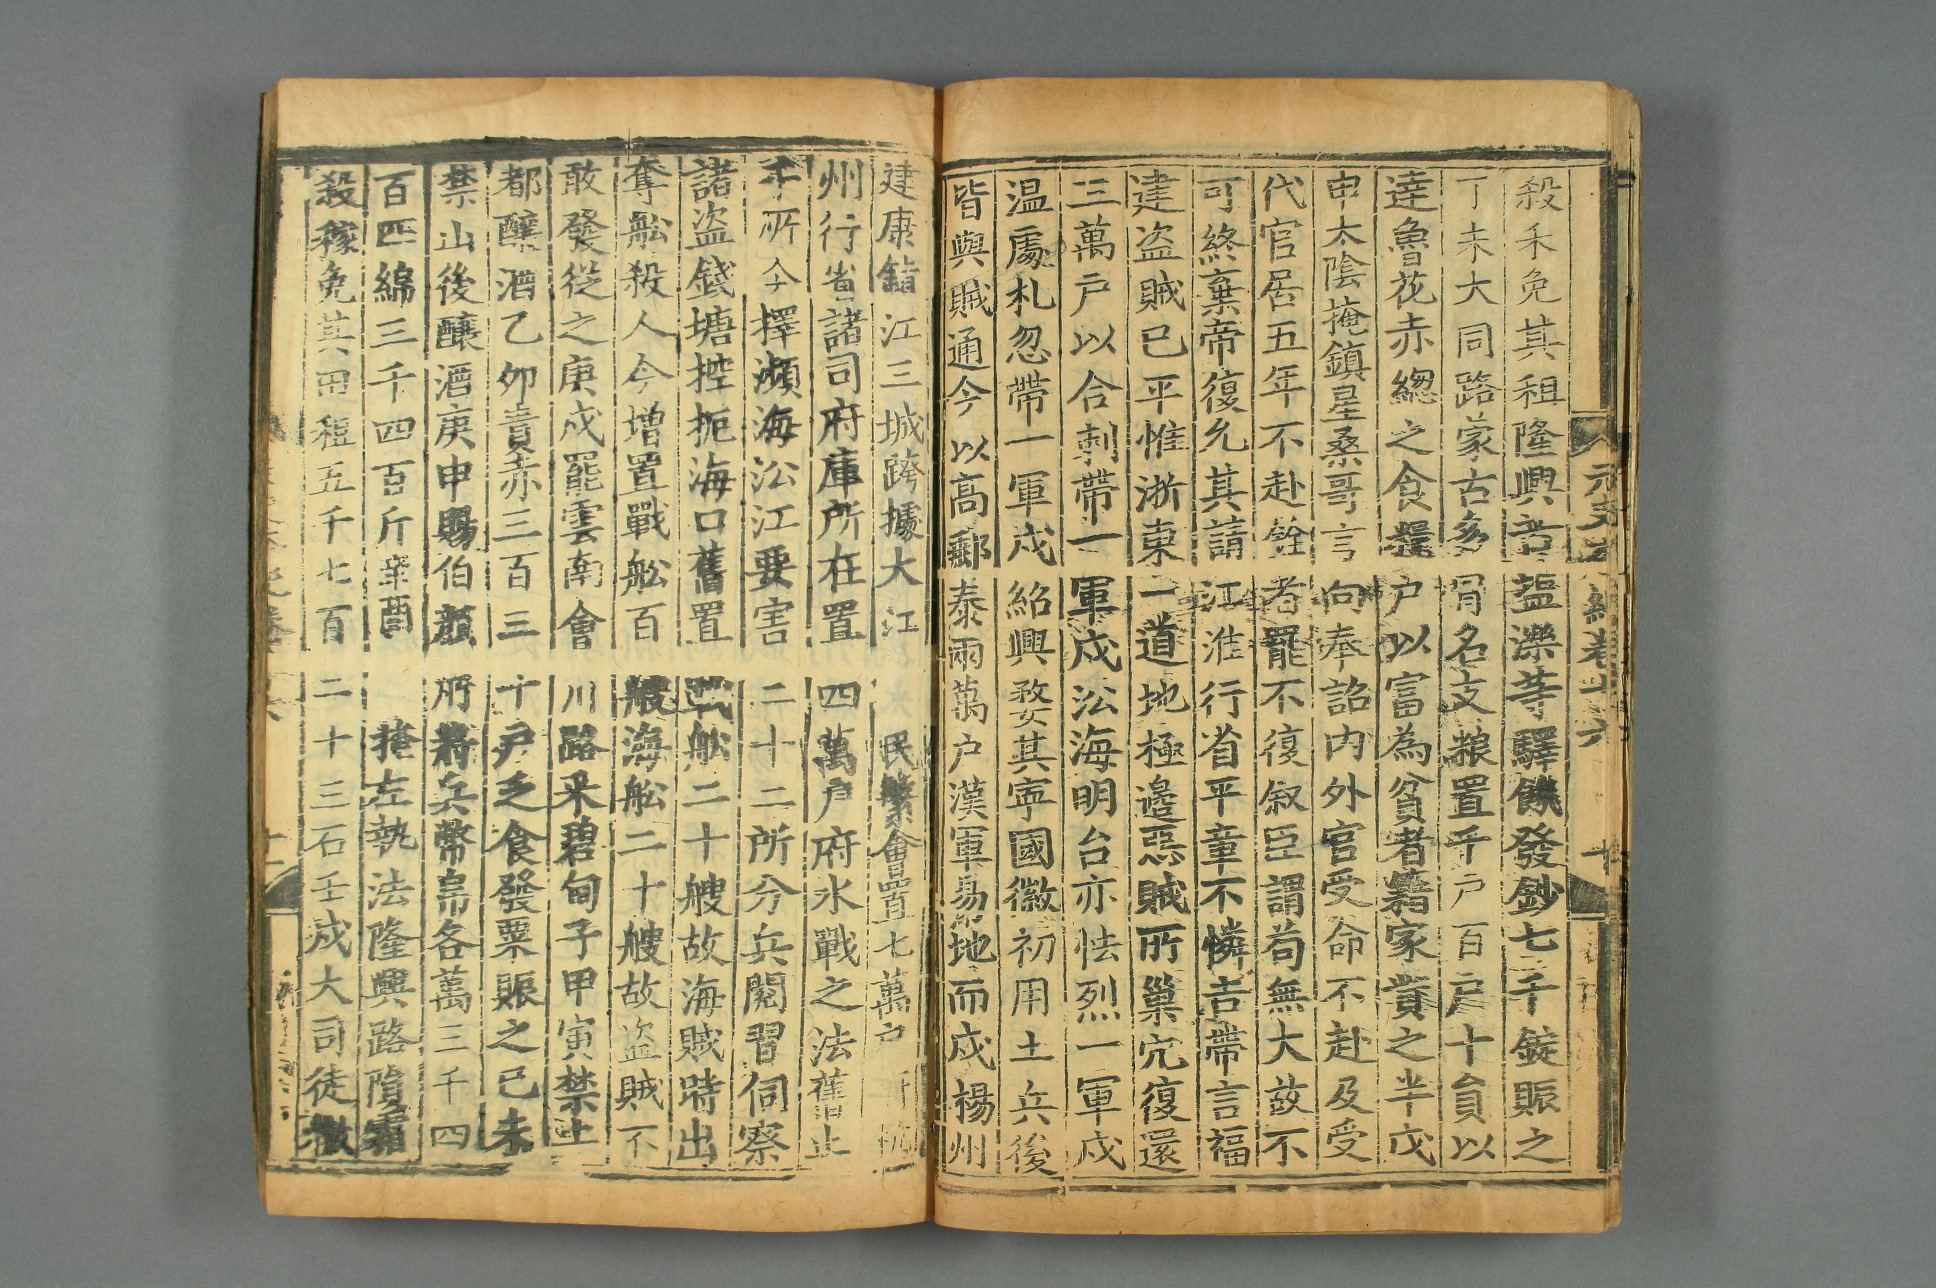 殺禾免其租隆興苦鹽濼等驛饑發鈔七千錠賑之
丁未大同路蒙古多冒名支粮置千戶百戶十員以
達魯花赤總之食糧戶以富為貧者籍家貲之半戊
申太陰掩鎮星桑哥言向奉詔內外官受命不赴及受
代官居五年不赴銓者罷不復叙臣謂苟無大故不
可終棄帝復允其請江淮行省平章不憐吉帶言福
建盜賊已平惟浙東一道地極邊惡賊所巢穴復還
三萬戶以合剌帶一軍戍㳂海明台亦怯烈一軍戍
温處札忽帶一軍戍紹興婺其寧國徽初用土兵後
皆與賊通今以高郵泰兩萬戶漢軍易地而戍楊州
建康鎮江三城跨據大江民繁會置七萬戶
州行省諸司府庫所在置四萬戶府水戰之法舊止
十所今擇瀕海㳂江要害二十二所分兵閱習伺察
諸盜錢塘控扼海口舊置戰舩二十艘故海賊時出
奪舩殺人今增置戰舩百艘海舩二十艘故盜賊不
敢發從之庚戌罷雲南會川路采碧甸子甲寅禁上
都釀酒乙卯責赤三百三十戶乏食發粟賑之已未
禁山後釀酒庚申賜伯顏所將兵幣帛各萬三千四
百匹綿三千四百斤辛酉掩左執法隆興路隕霜
殺稼免其田租五千七百二十三石壬戌大司徒撒